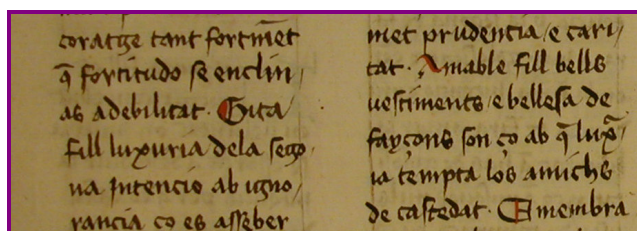 coratge tant fortmēt
q̄ fortitudo se enclin
as adebilitat. Gita
fill luxuria dela sego
na intencio ab igno
rancia ço es asseber
met prudencia / e cari
tat. Amable fill bells
uestiments / e bellesa de
fayçons son ço ab q̄ lux̄
ia tempta los amichs
de castedat. E membra